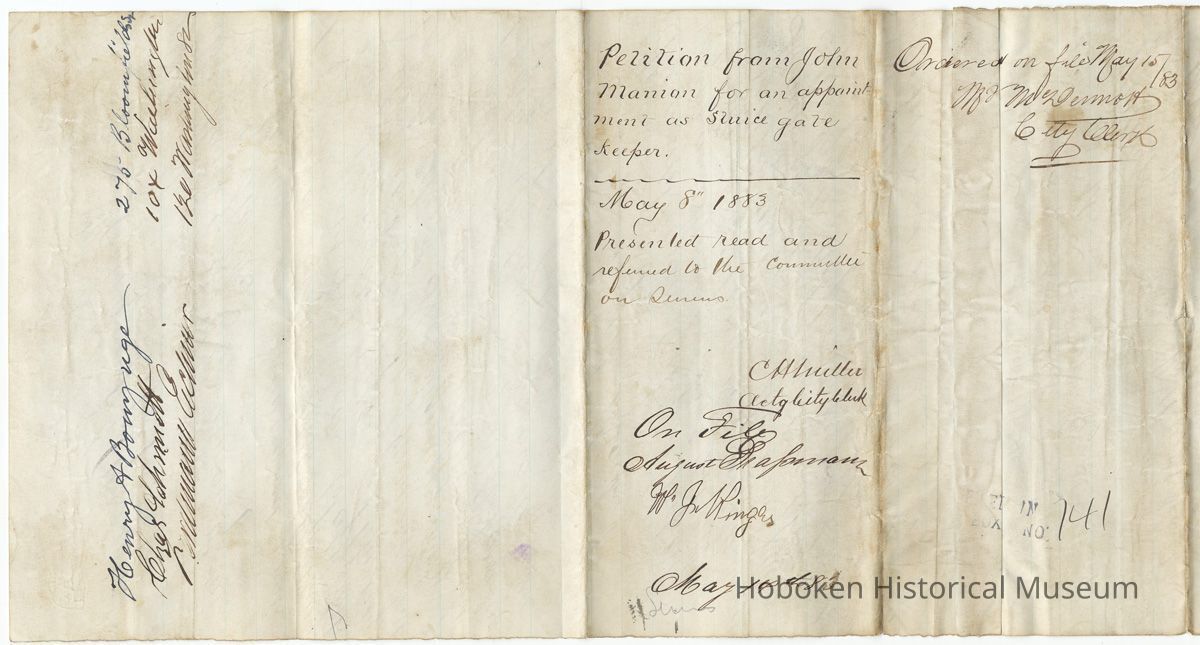 Henry A Bonynge 275 Bloomfield St
Chas Schmidt 104 Washington
Hermann 120 Washington St
Petition from John
Manion for an appoint
ment as Sluice gate
Keeper.
May 8" 1883
Presented read and
referred to the Committee
on Sewers
C H Miller
Actg City Clerk
On File
August Grassmann
W. J. Ringe
May
Sewers
Ordered on file May 15/83
McDermott
City Clerk
141
Hoboken Historical Museum